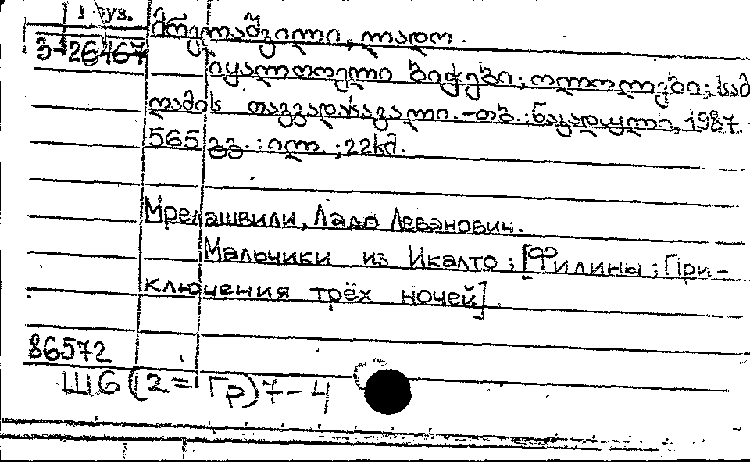 1 груз.
მრელაშვილი, ლადო.
3-26467
იყალთოელი ბიჭები; ოლოლები; სამ
ღამის თავგადასავალი. -თბ.: ნაკადული, 1987.
565 გვ. : ილ. ; 22 სმ.
Мрелашвили, Ладо Леванович.
Мальчики из Икалто; [Филины; При-
ключения трёх ночей].
86572
Ш6(2=Гр)7-4